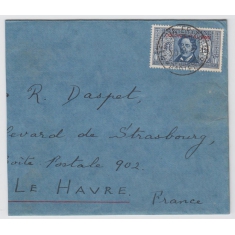 R. Daspet,
levard de Strasbourg,
oite Postale 902.
LE HAVRE
France